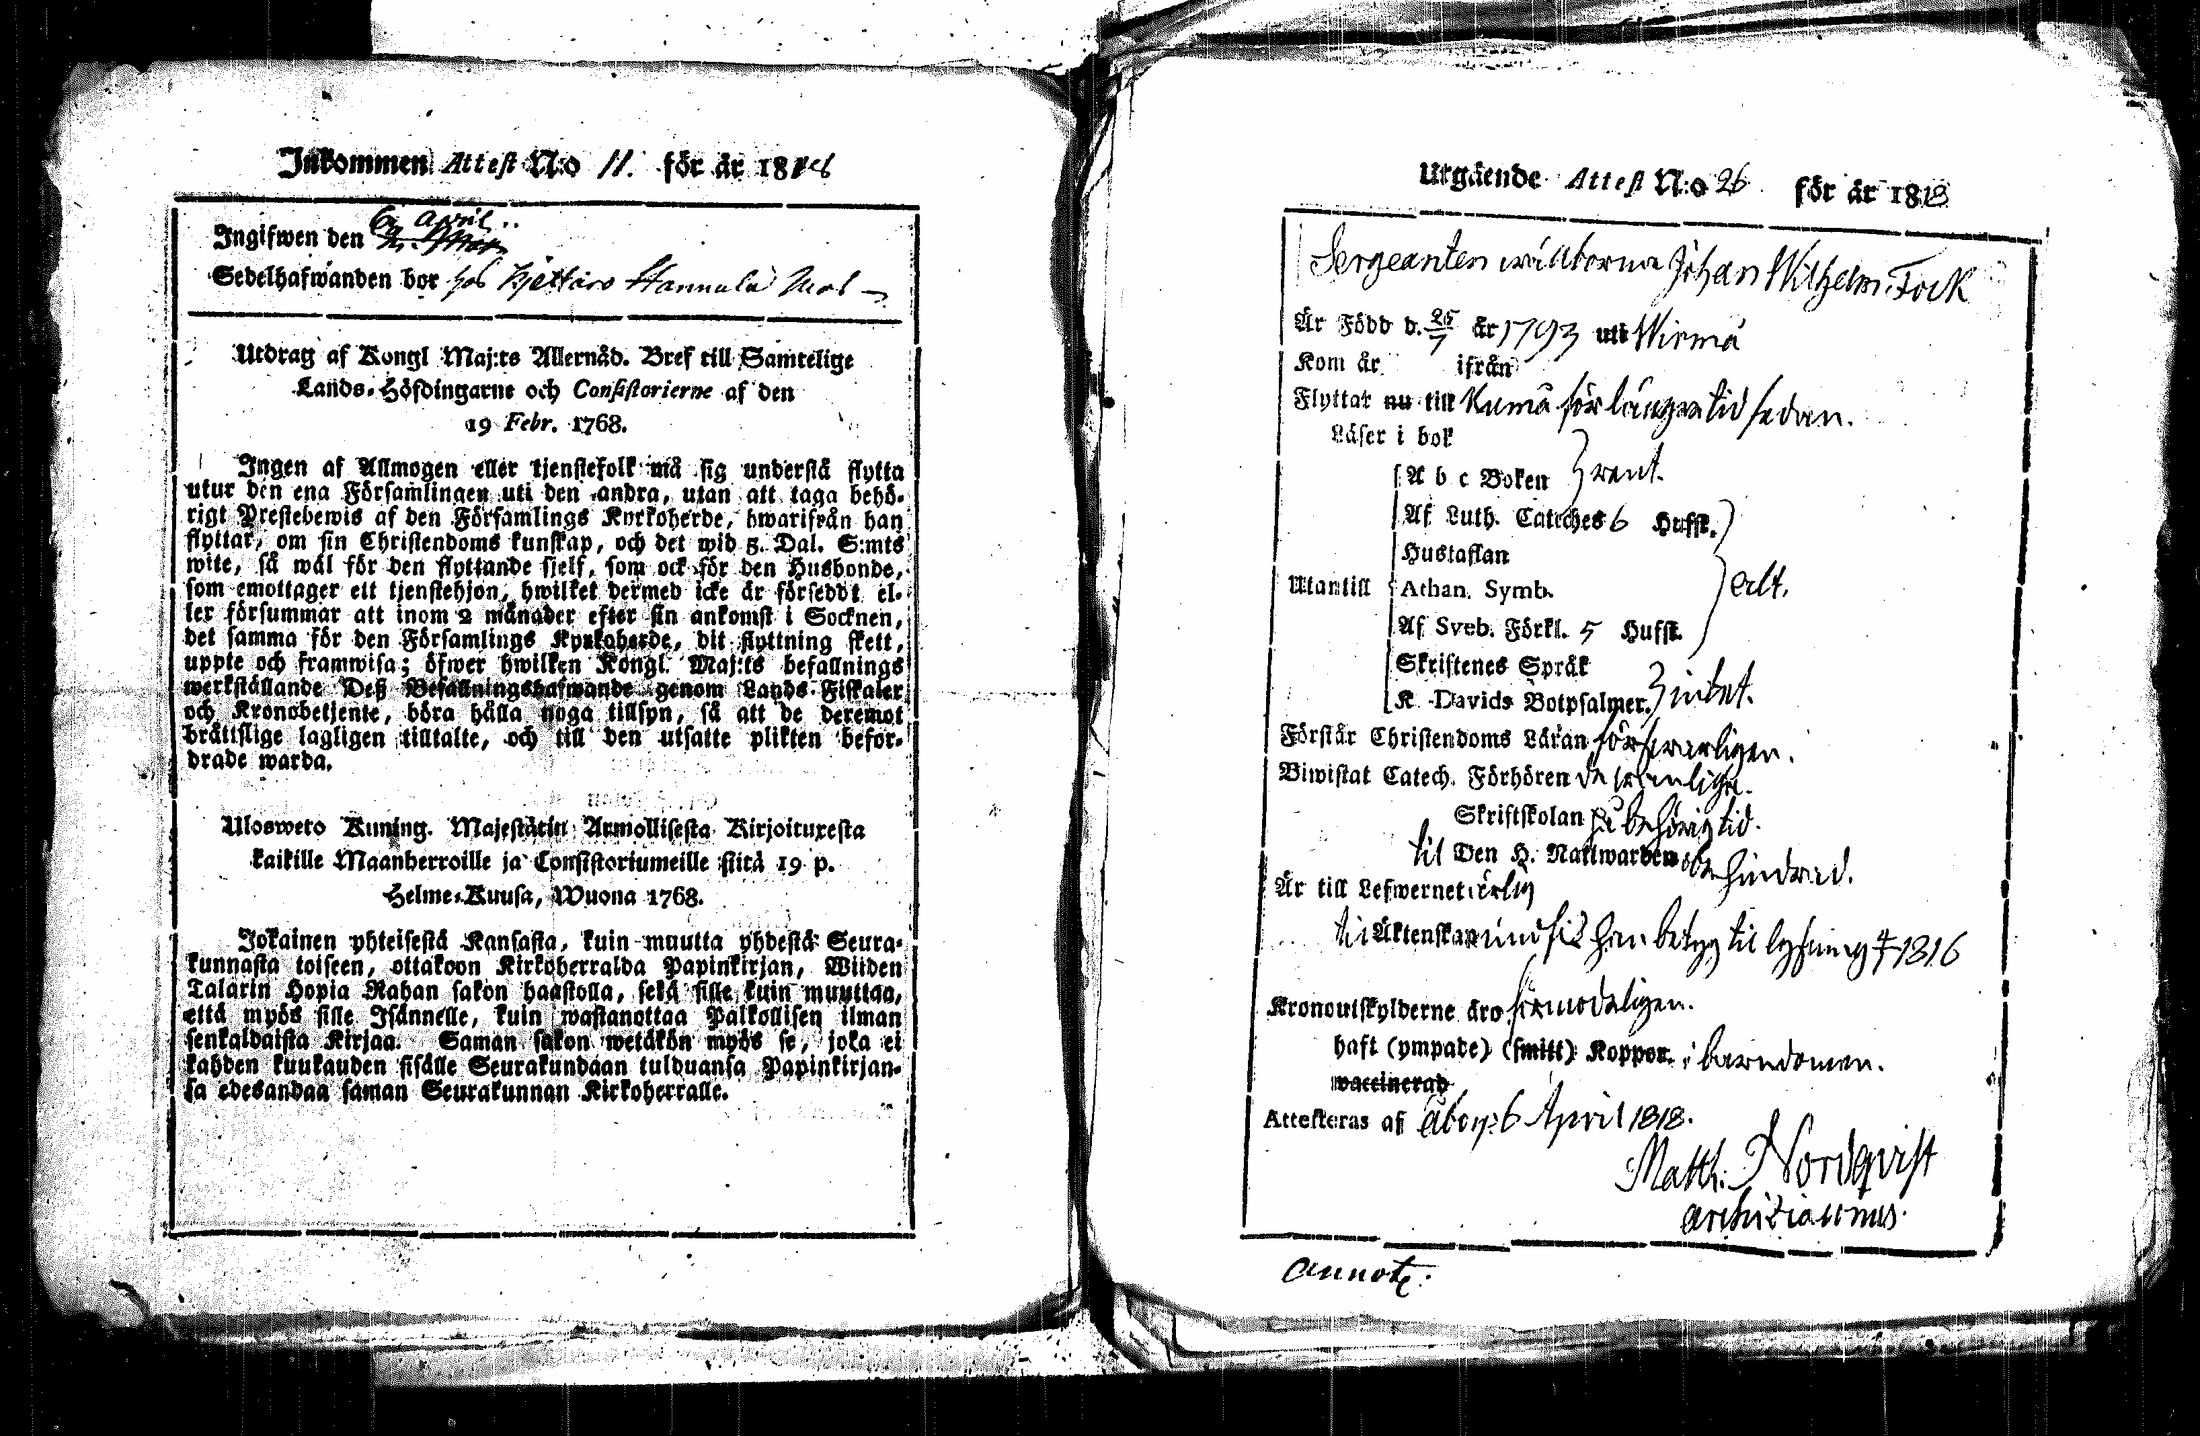 Inkommen Attest N:o 11. för år 18
Ingifwen den 6 April..
Sedelhafwanden bor hos
Utdrag af Kongl Maj:ts Allernåd. Bref till Samtelige
Lands-Höfdingarne och Consistorierne af den
19 Febr. 1768.
Ingen af Allmogen eller tjenstefolk må sig understå flytta
utur den ena Församlingen uti den andra, utan att taga behö-
rigt Prestebewis af den Församlings Kyrkoherde, hwarifrån han
flyttar, om sin Christendoms kunskap, och det wid 5. Dal. S:mts
wite, så wäl för den flyttande sjelf, som ock för den Husbonde,
som emottager ett tjenstehjon, hwilket dermed icke är förseddt, el-
ler försummar att inom 2 månader efter sin ankomst i Socknen,
det samma för den Församlings Kyrkoherde, dit flyttning skett,
uppte och framwisa; öfwer hwilken Kongl. Maj:ts befallnings
werkställande Deß Befallningshafwande genom Lands-Fiskaler
och Kronobetjente, böra hålla noga tillsyn, så att de deremot
bråttslige lagligen tilltalte, och till den utsatte plikten befor-
drade warda.
Ulosweto Kuning. Majestätin Armollisesta Kirjoituxesta
kaikille Maanherroille ja Consistoriumeille siitä 19 p.
Helme-Kuusa, Wuona 1768.
Jokainen yhteisestä Kansasta, kuin muutta yhdestä Seura-
kunnasta toiseen, ottakoon Kirkoherralda Papinkirjan, Wiiden
Talarin Hopia Rahan sakon haastolla, sekä sille kuin muuttaa,
että myös sille Isännelle, kuin wastanottaa Palkollisen ilman
senkaldaista Kirjaa. Saman sakon wetäkön myös se, joka ei
kahden kuukauden sisälle Seurakundaan tulduansa Papinkirjan-
sa edesandaa saman Seurakunnan Kirkoherralle.
Utgående Attest N:o 26 för år 1818
Sergeanten wälborne Johan Wilhelm Fock
Är Född d. 25/7 år 1793 uti Wirmo
Kom år ifrån
Flyttar nu till Kumå för längre tid sedan.
Läser i bok
A b c Boken } rent.
Af Luth. Cateches 6 Hufst.
Hustaflan
Utantill Athan. Symb. } alt.
Af Sveb. Förkl. 5 Hufst.
Skriftenes Språk
K. Davids Botpsalmer. } intet.
Förstår Christendoms Läran förswarligen.
Biwistat Catech. Förhören
Skriftskolan på behörig tid.
til Den H. Nattwarden obehindrad.
Är till Lefwernet ärlig
til Äktenskap undfick han betyg til lysning 1816
Kronoutskylderne äro förmodeligen.
haft (ympade) (smitt) Koppor. i barndomen.
waccinerad
Attesteras af Åbo d. 6 April 1818.
Matth: Nordqvist
Archidiaconus.
Annot: